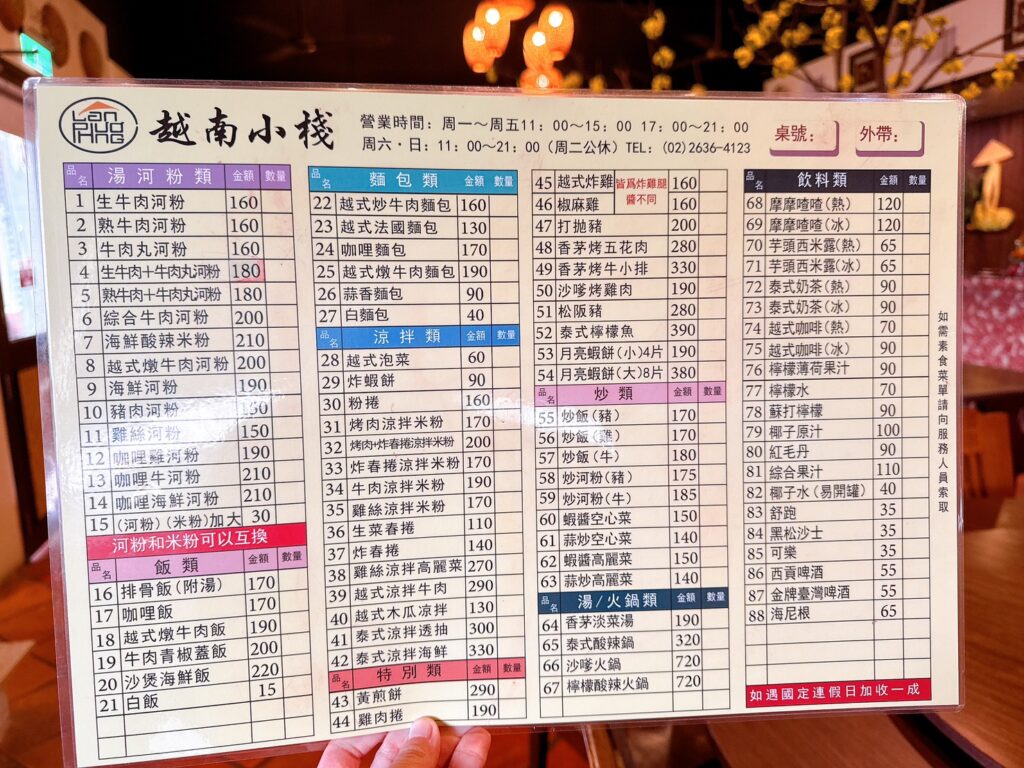 Lan PHNG
越南小棧
營業時間：周一～周五11：00～15：00 17：00～21：00
周六・日：11：00～21：00（周二公休）TEL：(02)2636-4123
桌號：
外帶：
品名 湯河粉類 金額 數量
1 生牛肉河粉 160
2 熟牛肉河粉 160
3 牛肉丸河粉 160
4 生牛肉＋牛肉丸河粉 180
5 熟牛肉＋牛肉丸河粉 180
6 綜合牛肉河粉 200
7 海鮮酸辣米粉 210
8 越式燉牛肉河粉 200
9 海鮮河粉 190
10 豬肉河粉
11 雞絲河粉 150
12 咖哩雞河粉 190
13 咖哩牛河粉 210
14 咖哩海鮮河粉 210
15 (河粉)(米粉)加大 30
河粉和米粉可以互換
品名 飯類 金額 數量
16 排骨飯(附湯) 170
17 咖哩飯 170
18 越式燉牛肉飯 190
19 牛肉青椒蓋飯 200
20 沙煲海鮮飯 220
21 白飯 15
品名 麵包類 金額 數量
22 越式炒牛肉麵包 160
23 越式法國麵包 130
24 咖哩麵包 170
25 越式燉牛肉麵包 190
26 蒜香麵包 90
27 白麵包 40
品名 涼拌類 金額 數量
28 越式泡菜 60
29 炸蝦餅 90
30 粉捲 160
31 烤肉涼拌米粉 170
32 烤肉+炸春捲涼拌米粉 200
33 炸春捲涼拌米粉 170
34 牛肉涼拌米粉 190
35 雞絲涼拌米粉 170
36 生菜春捲 110
37 炸春捲 140
38 雞絲涼拌高麗菜 270
39 越式涼拌牛肉 290
40 越式木瓜涼拌 130
41 泰式涼拌透抽 300
42 泰式涼拌海鮮 330
品名 特別類 金額 數量
43 黃煎餅 290
44 雞肉捲 190
45 越式炸雞 160
46 椒麻雞 160
皆爲炸雞腿
醬不同
47 打拋豬 200
48 香茅烤五花肉 280
49 香茅烤牛小排 330
50 沙嗲烤雞肉 190
51 松阪豬 280
52 泰式檸檬魚 390
53 月亮蝦餅(小)4片 190
54 月亮蝦餅(大)8片 380
品名 炒類 金額 數量
55 炒飯(豬) 170
56 炒飯(雞) 170
57 炒飯(牛) 180
58 炒河粉(豬) 175
59 炒河粉(牛) 185
60 蝦醬空心菜 150
61 蒜炒空心菜 140
62 蝦醬高麗菜 150
63 蒜炒高麗菜 140
品名 湯/火鍋類 金額 數量
64 香茅淡菜湯 190
65 泰式酸辣鍋 320
66 沙嗲火鍋 720
67 檸檬酸辣火鍋 720
品名 飲料類 金額 數量
68 摩摩喳喳(熱) 120
69 摩摩喳喳(冰) 120
70 芋頭西米露(熱) 65
71 芋頭西米露(冰) 65
72 泰式奶茶(熱) 90
73 泰式奶茶(冰) 90
74 越式咖啡(熱) 70
75 越式咖啡(冰) 90
76 檸檬薄荷果汁 90
77 檸檬水 70
78 蘇打檸檬 90
79 椰子原汁 100
80 紅毛丹 90
81 綜合果汁 110
82 椰子水(易開罐) 40
83 舒跑 35
84 黑松沙士 35
85 可樂 35
86 西貢啤酒 55
87 金牌臺灣啤酒 55
88 海尼根 65
如遇國定連假日加收一成
如需素食菜單請向服務人員索取